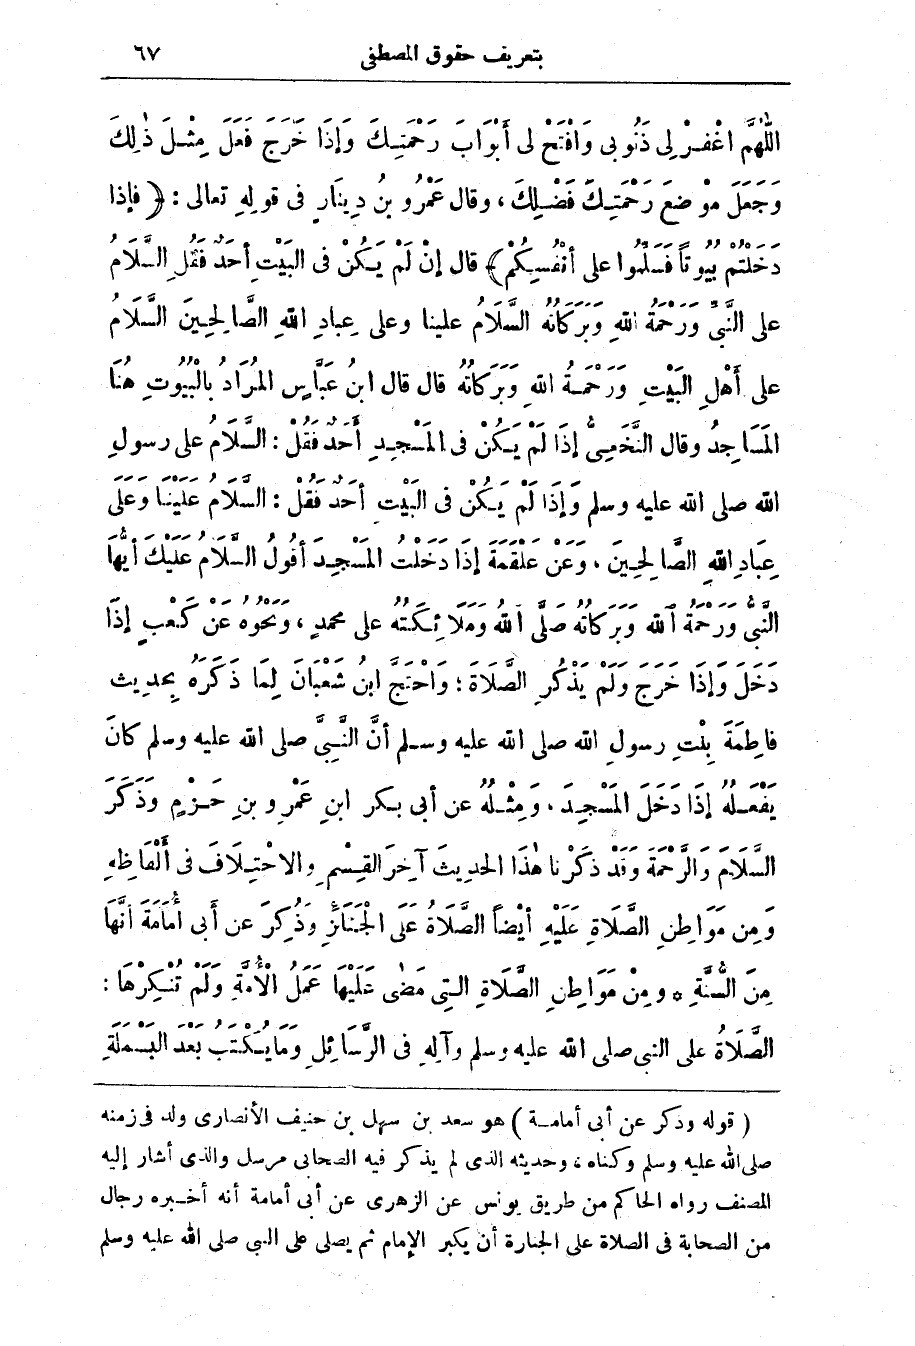 بتعريف حقوق المصطفى ٦٧
اللَّهُمَّ اغْفِرْ لِى ذُنُوبى وَافْتَحْ لى أَبْوَابَ رَحْمَتِكَ وَإِذَا خَرَجَ فَعَلَ مِثْلَ ذٰلِكَ
وَجَعَلَ مَوْضِعَ رَحْمَتِكَ فَضْلِكَ ، وقال عَمْرُو بنُ دِينَارٍ فى قولِهِ تعالى : ﴿ فإذا
دَخَلْتُمْ بُيُوتاً فَسَلِّمُوا على أَنْفُسِكُمْ ﴾ قال إنْ لَمْ يَكُنْ فى البَيْتِ أحَدٌ فَقُلِ السَّلَامُ
على النَّبِىِّ وَرَحْمَةُ اللهِ وَبَرَكَاتُهُ السَّلَامُ علينا وعلى عِبادِ اللهِ الصَّالِحِينَ السَّلَامُ
على أَهْلِ البَيْتِ وَرَحْمَةُ اللهِ وَبَرَكاتُهُ قال قال ابنُ عَبَّاسٍ المُرَادُ بالْبُيُوتِ هُنَا
المَسَاجِدُ وقال النَّخَعِىُّ إذَا لَمْ يَكُنْ فى المَسْجِدِ أَحَدٌ فَقُلْ : السَّلَامُ على رسولِ
الله صلى الله عليه وسلم وَإذَا لَمْ يَكُنْ فى البَيْتِ أحَدٌ فَقُلْ : السَّلَامُ عَلَيْنَا وعَلَى
عِبَادِ اللهِ الصَّالِحِينَ ، وَعَنْ عَلْقَمَةَ إذَا دَخَلْتُ المَسْجِدَ أقُولُ السَّلَامُ عَلَيْكَ أيُّهَا
النَّبِىُّ وَرَحْمَةُ اللهِ وَبَرَكَاتُهُ صَلَّى اللهُ وَمَلَائِكَتُهُ على محمدٍ ، وَنَحْوُهُ عَنْ كَعْبٍ إذَا
دَخَلَ وَإذَا خَرَجَ وَلَمْ يَذْكُرِ الصَّلَاةَ ؛ وَاحْتَجَّ ابنُ شَعْبَانَ لِمَا ذَكَرَهُ بِحديثِ
فاطِمَةَ بِنْتِ رسولِ الله صلى الله عليه وسلم أنَّ النَّبِىَّ صلى الله عليه وسلم كانَ
يَفْعَلُهُ إذَا دَخَلَ المَسْجِدَ ، وَمِثْلُهُ عن أبى بكر ابنِ عَمْرِو بنِ حَزْمٍ وَذَكَرَ
السَّلَامَ وَالرَّحْمَةَ وَقَدْ ذَكَرْنا هٰذَا الحديثَ آخِرَ القِسْمِ والاخْتِلَافَ فى ألْفَاظِهِ
وَمِن مَوَاطِنِ الصَّلَاةِ عَلَيْهِ أيْضاً الصَّلَاةُ عَلَى الْجَنَائِزِ وَذُكِرَ عن أبى أُمَامَةَ أنَّهَا
مِنَ السُّنَّةِ * ومِنْ مَوَاطِنِ الصَّلَاةِ التِى مَضَى عَلَيْهَا عَمَلُ الْأُمَّةِ وَلَمْ تُنْكِرْهَا :
الصَّلَاةُ على النبِى صلى الله عليه وسلم وآلِهِ فى الرَّسَائِلِ وَمَا يُكْتَبُ بَعْدَ البَسْمَلَةِ
( قوله وذكر عن أبى أمامة ) هو سعد بن سهل بن حنيف الأنصارى ولد فى زمنه
صلى الله عليه وسلم وكناه ، وحديثه الذى لم يذكر فيه الصحابى مرسل والذى أشار إليه
المصنف رواه الحاكم من طريق يونس عن الزهرى عن أبى أمامة أنه أخبره رجال
من الصحابة فى الصلاة على الجنازة أن يكبر الإمام ثم يصلى على النبي صلى الله عليه وسلم